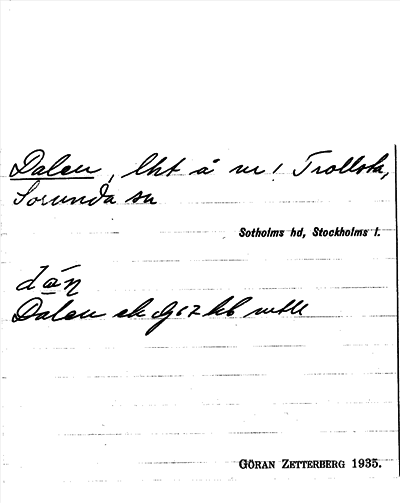 Dalen, lht å nr 1 Trollsta,
Sorunda sn
Sotholms hd, Stockholms l.
dáŋ
Dalen ek
GÖRAN ZETTERBERG 1935.